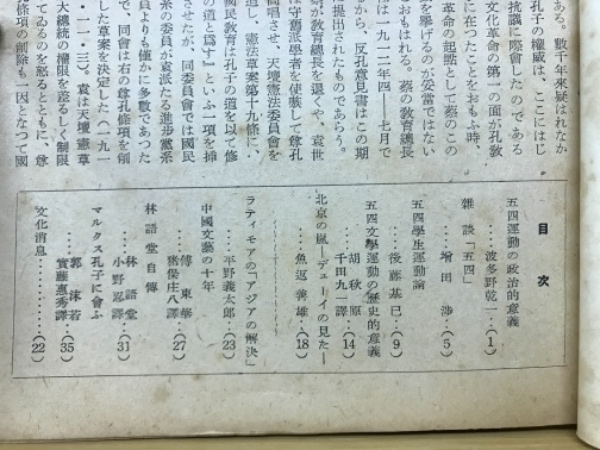 ある。數千年來疑はれなか
孔子の權威は、ここにはじ
抗議に際會したのである。
文化革命の第一の面が孔敎
に在つたことをおもふ時、
革命の起點として蔡のこの
を擧げるのが妥當ではない
おもはれる。蔡の敎育總長
は一九一二年四—七月で
るから、反孔意見書はこの期
提出されたものであらう。
蔡が敎育總長を退くや、袁世
は舊派學者を使嗾して尊孔
高唱させ、天壇憲法委員會を
迫し、憲法草案第十九條に、
國民敎育は孔子の道を以て修
の道と爲す』といふ一項を揷
させたが、同委員會では國民
系の委員が袁派たる進步黨系
員よりも僅かに多數であつた
で、同會は右の尊孔條項を削
した草案を決定した(一九一
・一一・三)。袁は天壇憲草
大總統の權限を差るしく制限
てゐるのを怒るとともに、尊
條項の削除も一因となつて國
目次
五四運動の政治的意義
波多野乾一‥(1)
雜談「五四」
增田涉‥(5)
五四學生運動論
後藤基巳‥(9)
五四文學運動の歷史的意義
胡秋原
千田九一譯‥(14)
北京の嵐—デューイの見た—
魚返善雄‥(18)
ラティモアの「アジアの解決」
平野義太郎‥(23)
中國文藝の十年
傅東華
猪俣庄八譯‥(27)
林語堂自傳
林語堂
小野忍譯‥(31)
マルクス孔子に會ふ
郭沫若
實藤惠秀譯‥(35)
文化消息…………(22)